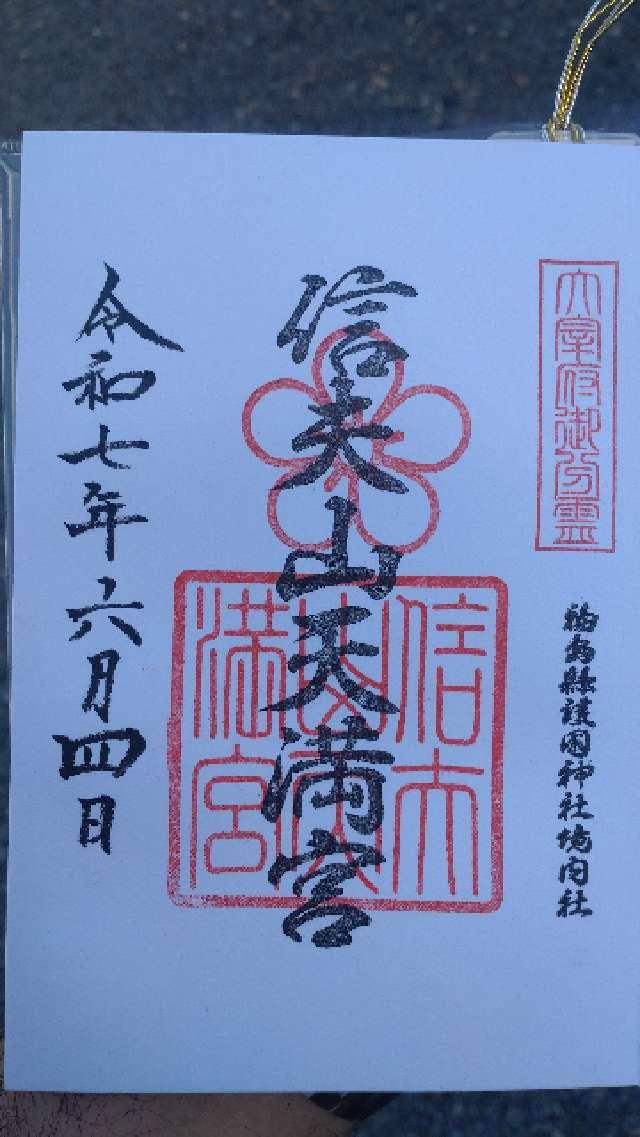 太宰府御分霊
福島縣護國神社境内社
信夫山天満宮
信夫山天満宮
令和七年六月四日